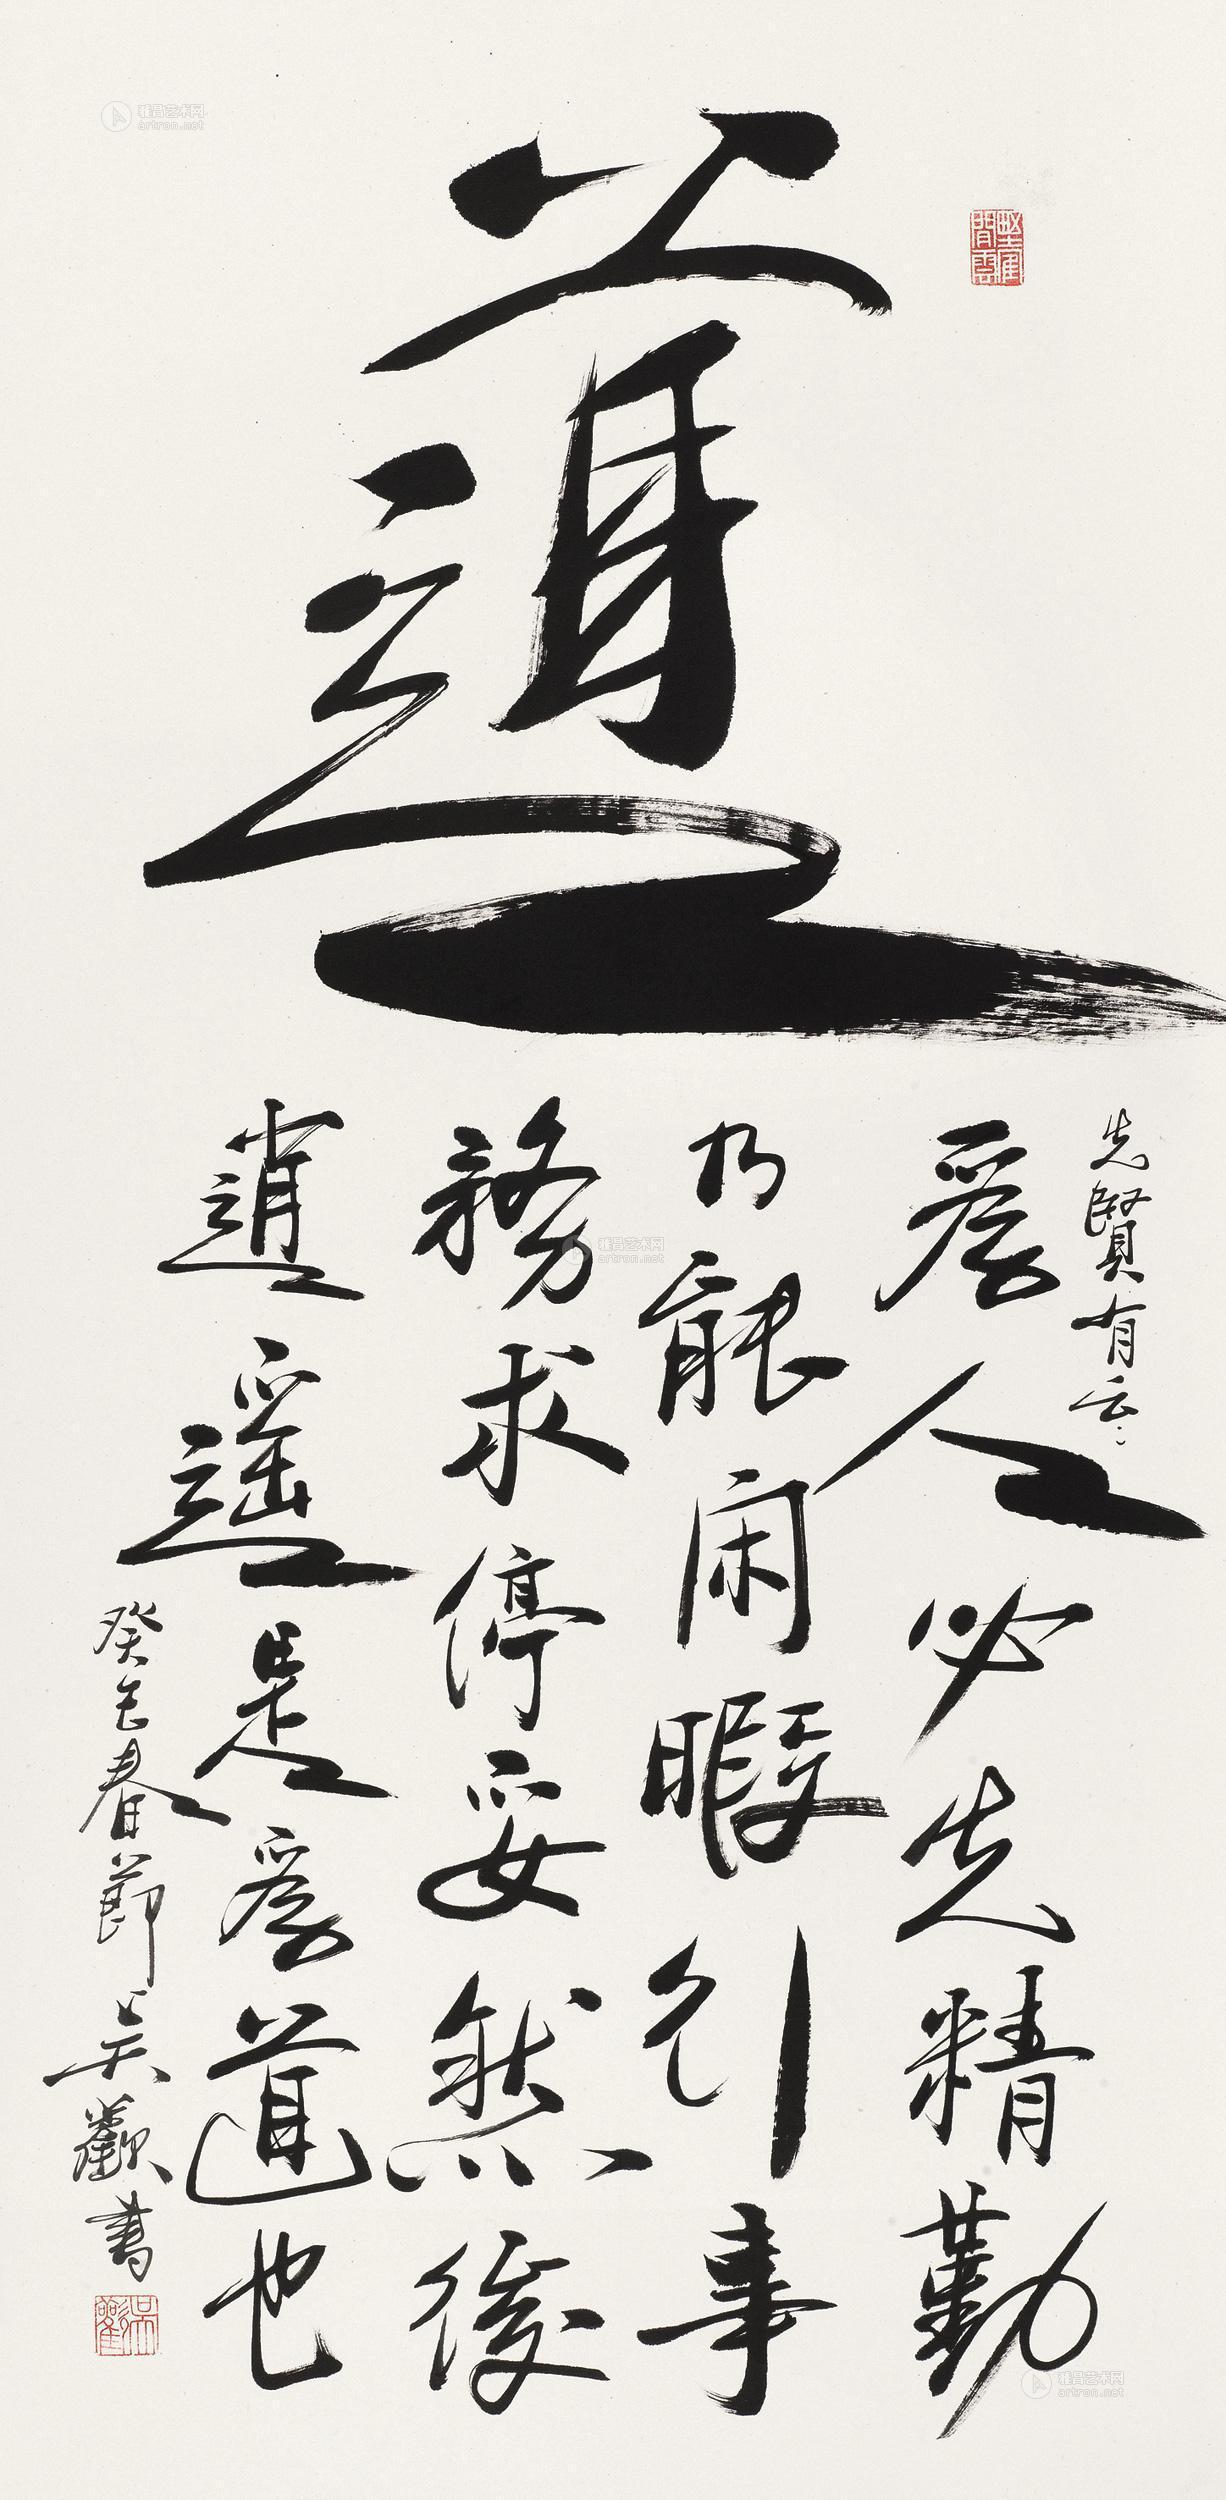 道
先賢有云：
為人必先精勤
乃能闲暇行事
務求停妥然後
逍遥是為道也
癸巳春節吴歡書
野雀閒雲
吴歡
雅昌艺术网
artron.net
雅昌艺术网
artron.net
雅昌艺术网
artron.net